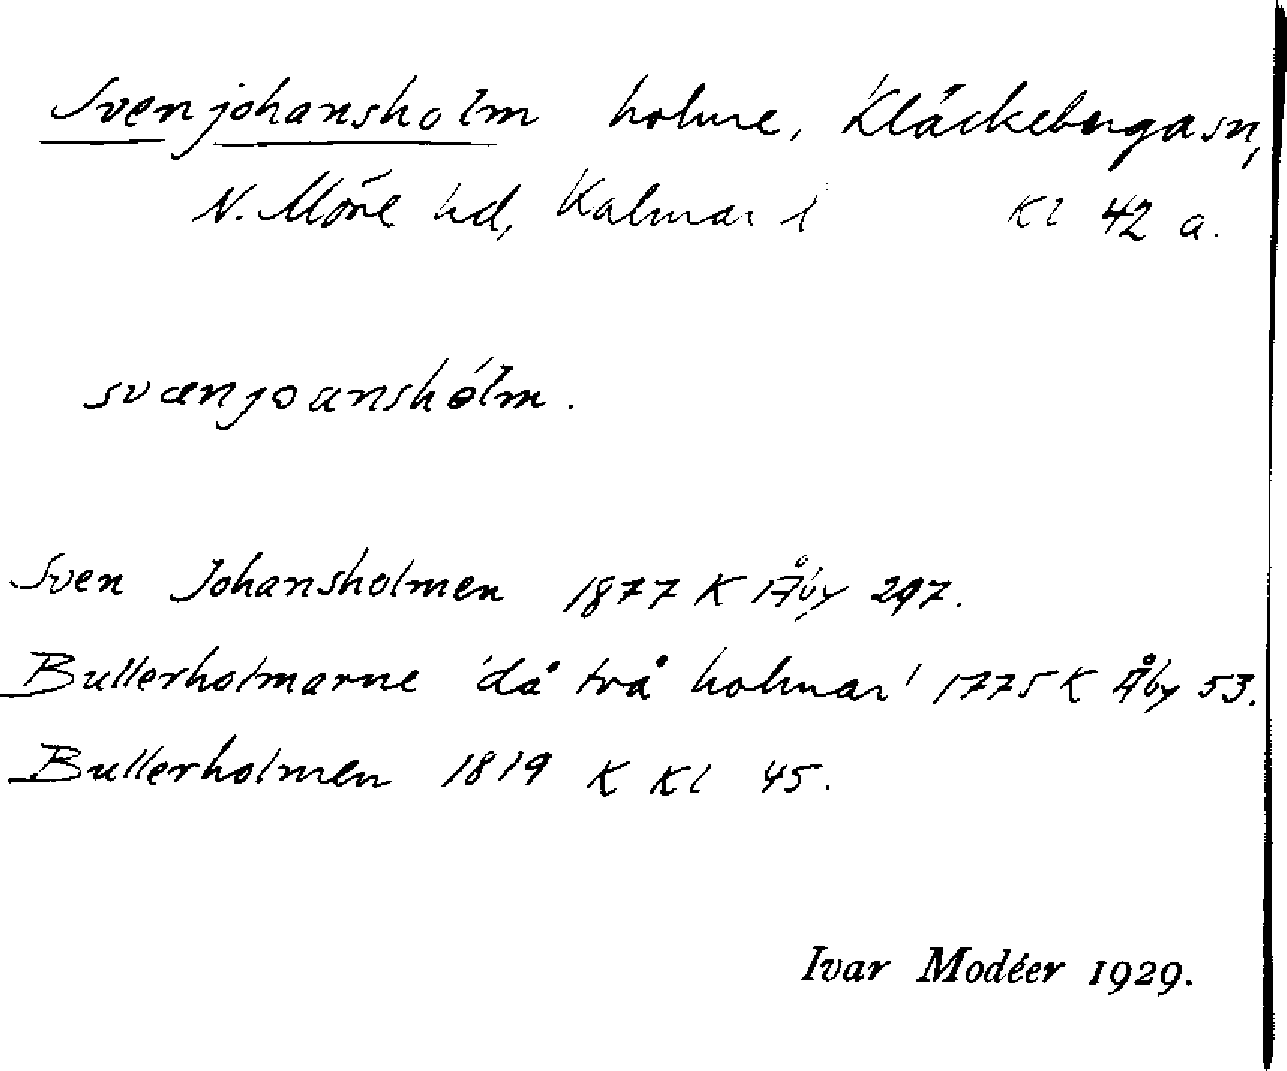 Svenjohansholm holme, Kläckeberga sn,
N. Möre hd, Kalmar l Kl 42 a.
svænjoanshólm.
Sven Johansholmen 1877 K Åby 297.
Bullerholmarne 'då två holmar' 1775 K Åby 53.
Bullerholmen 1819 K Kl 45.
Ivar Modéer 1929.